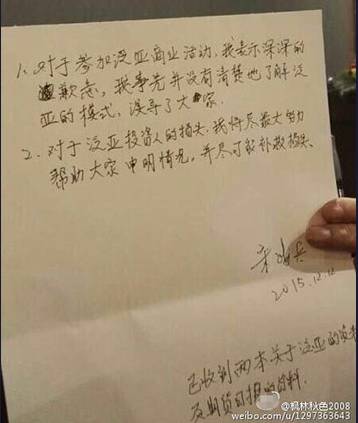 1、对于参加泛亚商业活动，我表示深深的
歉意，我事先并没有清楚地了解泛
亚的模式，误导了大家.
2、对于泛亚投资人的损失，我将尽最大努力
帮助大家申明情况，并尽可能补救损失。
宋鸿兵
2015.12.12
已收到两本关于泛亚的
及期货日报的材料
@枫林秋色2008
weibo.com/u/1297363643